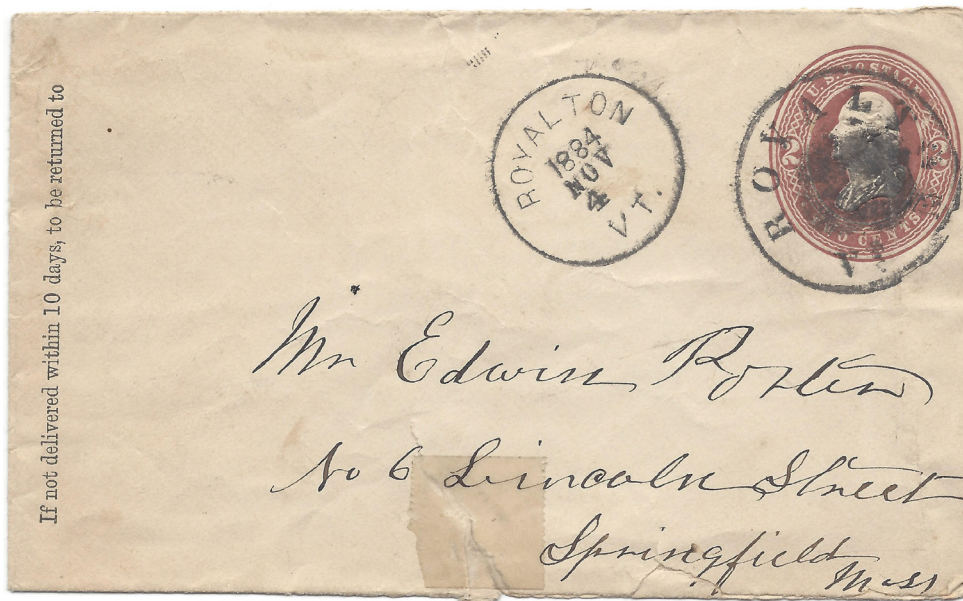 If not delivered within 10 days, to be returned to
ROYALTON
1884
NOV
4
VT.
ROYALT
U.S. POSTAGE
2
TWO CENTS
Mr Edwin Porter
No 6 Lincoln Street
Springfield
Mass